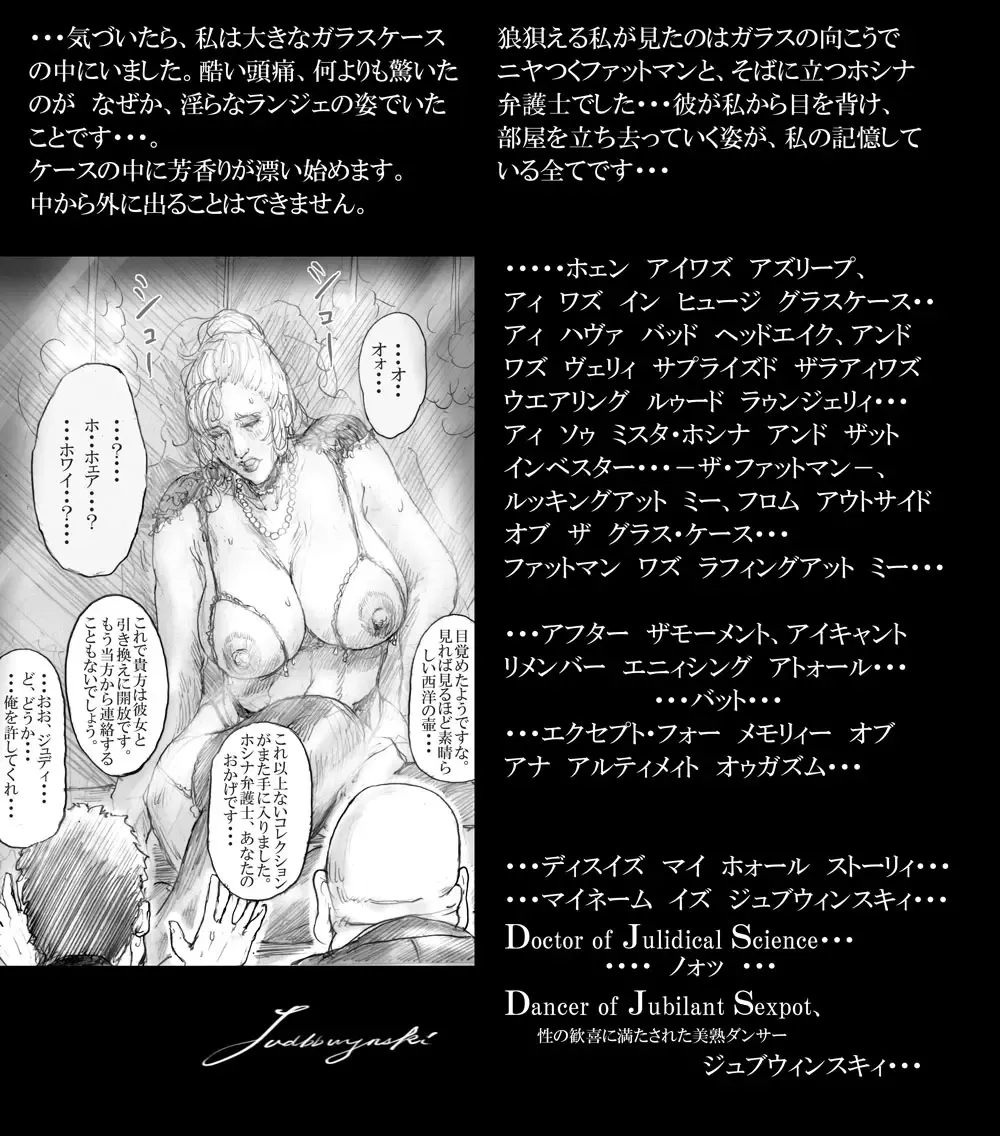 ・・・気づいたら、私は大きなガラスケース
の中にいました。酷い頭痛、何よりも驚いた
のが なぜか、淫らなランジェの姿でいた
ことです・・・。
ケースの中に芳香りが漂い始めます。
中から外に出ることはできません。
狼狽える私が見たのはガラスの向こうで
ニヤつくファットマンと、そばに立つホシナ
弁護士でした・・・彼が私から目を背け、
部屋を立ち去っていく姿が、私の記憶して
いる全てです・・・
シュー
シュー
・・・オ・・
オォ・・・
・・?・・・
ホ・・ホェア・・・・?
・・・ホワイ・・?・・・
目覚めたようですな。
見れば見るほど素晴ら
しい西洋の壷・・・
これ以上ないコレクション
がまた手に入りました。
ホシナ弁護士、あなたの
おかげです・・・
これで貴方は彼女と
引き換えに開放です。
もう当方から連絡する
こともないでしょう。
・・・おお、ジュディ・・・
ど、どうか・・・
・・・俺を許してくれ・・・
・・・・・ホェン アイワズ アズリープ、
アィ ワズ イン ヒュージ グラスケース・・
アィ ハヴァ バッド ヘッドエイク、アンド
ワズ ヴェリィ サプライズド ザラアィワズ
ウエアリング ルゥード ラゥンジェリィ・・・
アィ ソゥ ミスタ・ホシナ アンド ザット
インベスター・・・－ザ・ファットマン－、
ルッキングアット ミー、フロム アウトサイド
オブ ザ グラス・ケース・・・
ファットマン ワズ ラフィングアット ミー・・・
・・・アフター ザモーメント、アイキャント
リメンバー エニィシング アトォール・・・
・・・バット・・・
・・・エクセプト・フォー メモリィー オブ
アナ アルティメイト オゥガズム・・・
・・・ディスイズ マイ ホォール ストーリィ・・・
・・・マイネーム イズ ジュブウィンスキィ・・・
Doctor of Julidical Science・・・
・・・・ ノォッ ・・・
Dancer of Jubilant Sexpot、
性の歓喜に満たされた美熟ダンサー
ジュブウィンスキィ・・・